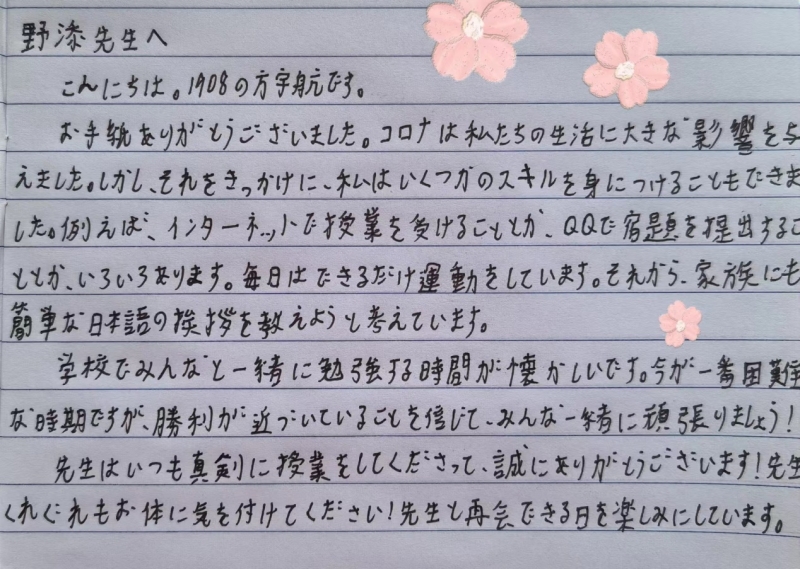 野添先生へ
こんにちは。1908の方宇航です。
お手紙ありがとうございました。コロナは私たちの生活に大きな影響を与
えました。しかし、それをきっかけに、私はいくつかのスキルを身につけることもできま
した。例えば、インターネットで授業を受けることとか、QQで宿題を提出するこ
ととか、いろいろあります。毎日はできるだけ運動をしています。それから、家族にも
簡単な日本語の挨拶を教えようと考えています。
学校でみんなと一緒に勉強する時間が懐かしいです。今が一番困難
な時期ですが、勝利が近づいていることを信じて、みんな一緒に頑張りましょう！
先生はいつも真剣に授業をしてくださって、誠にありがとうございます！先生
くれぐれもお体に気を付けてください！先生と再会できる日を楽しみにしています。